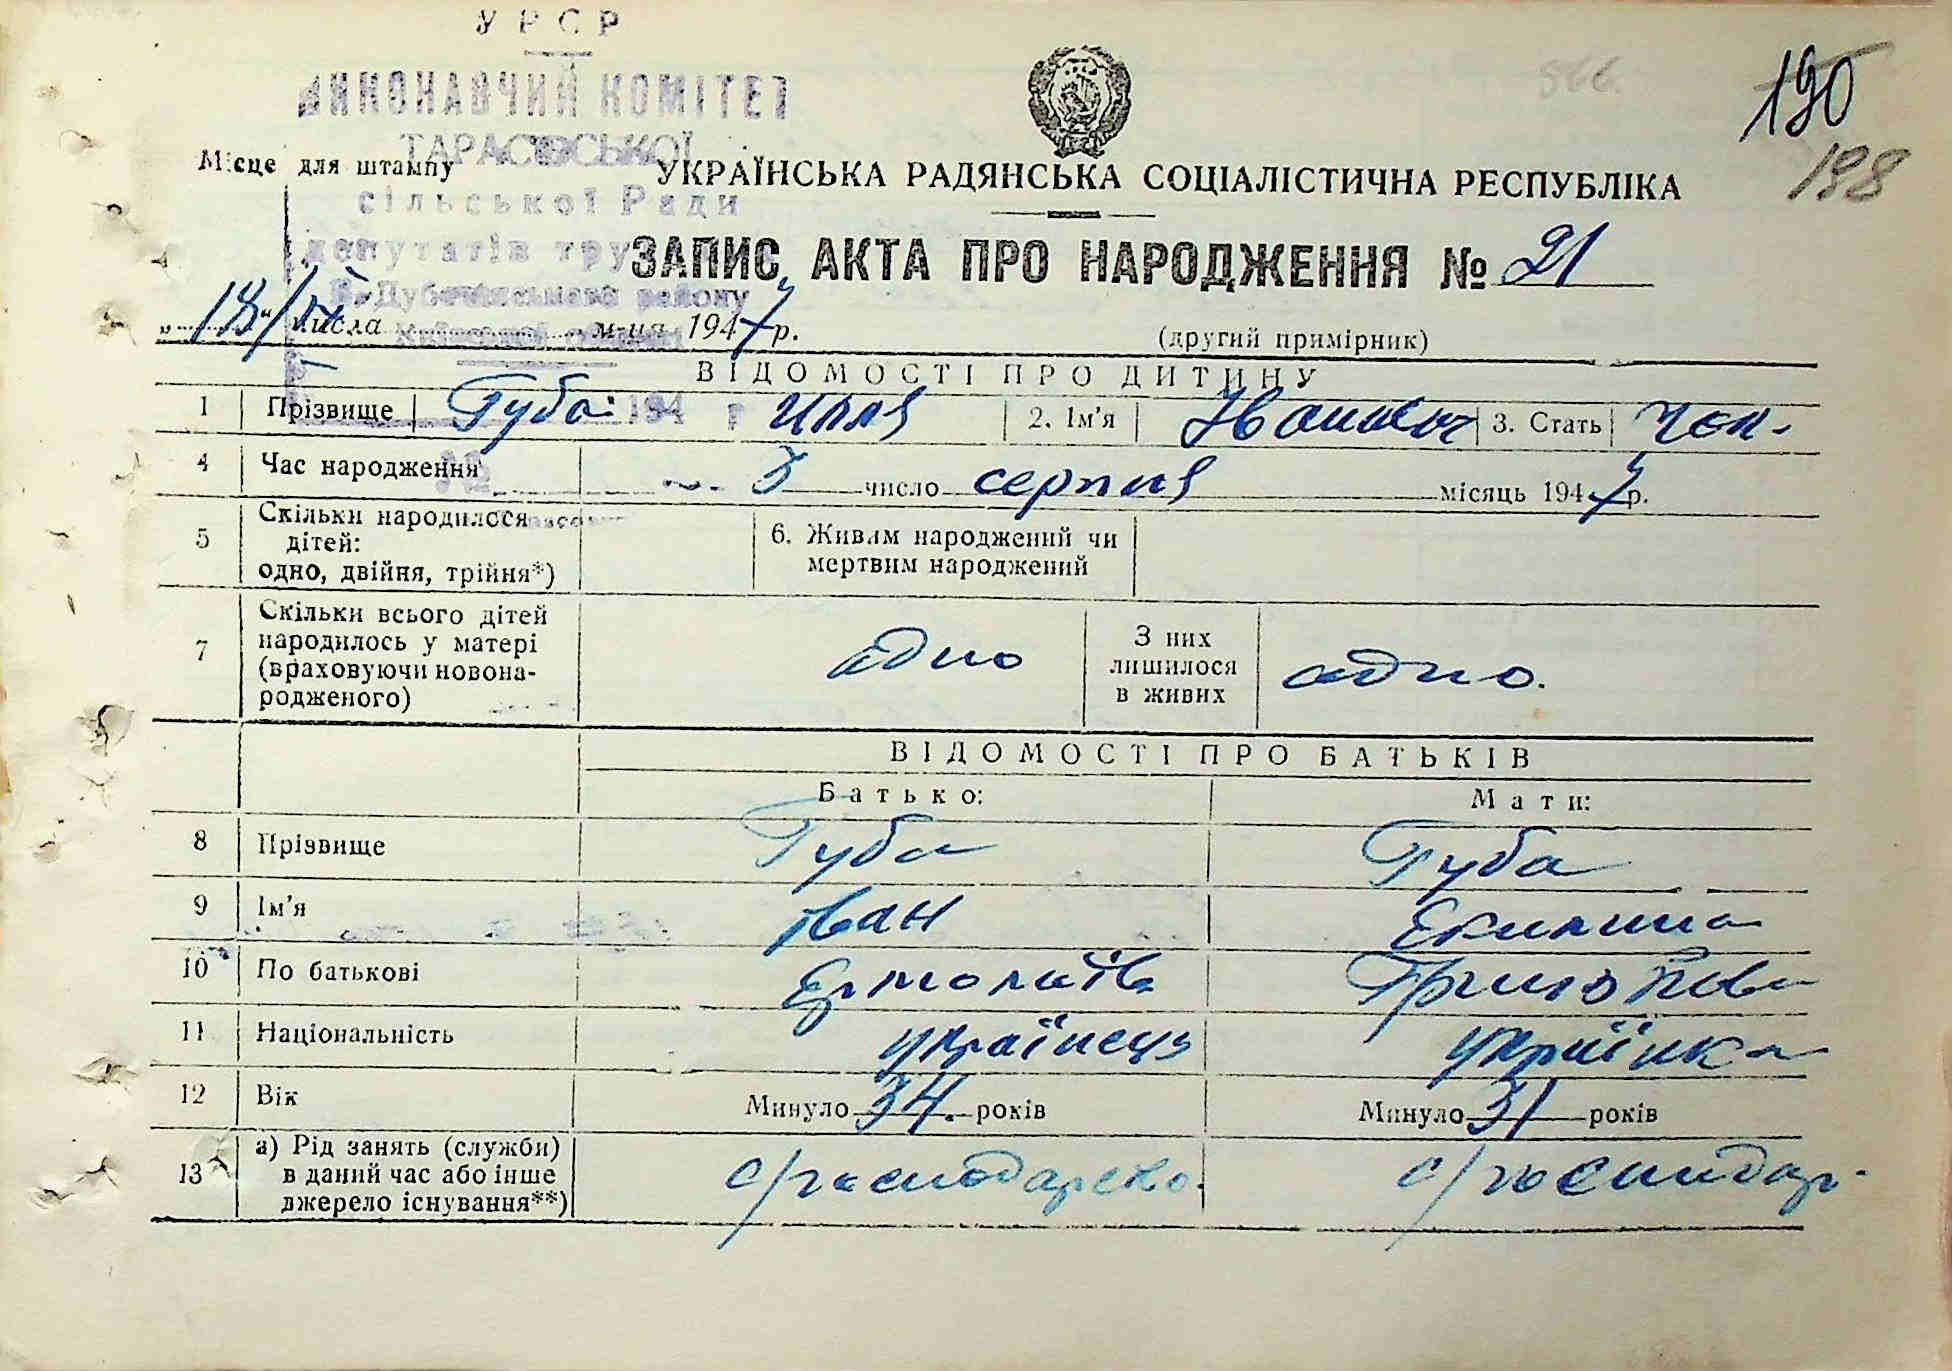 УРСР
ВИКОНАВЧИЙ КОМІТЕТ
ТАРАСІВСЬКОЇ
сільської Ради
депутатів тру
190
198
Місце для штампу
УКРАЇНСЬКА РАДЯНСЬКА СОЦІАЛІСТИЧНА РЕСПУБЛІКА
ЗАПИС АКТА ПРО НАРОДЖЕННЯ № 21
району
„18/VIII“ числа м-ця 1947 р.
(другий примірник)
ВІДОМОСТІ ПРО ДИТИНУ
1 Прізвище Губа Илля 2. Ім'я Іванович 3. Стать чол.
194 р
4 Час народження 3 число серпня місяць 1947 р.
5 Скільки народилося дітей: одно, двійня, трійня*) 6. Живим народжений чи мертвим народжений
7 Скільки всього дітей народилось у матері (враховуючи новонародженого) адно З них лишилося в живих адно.
ВІДОМОСТІ ПРО БАТЬКІВ
Батько: Мати:
8 Прізвище Губа Губа
9 Ім'я Іван Екилина
10 По батькові Ермолаїв
11 Національність українець українка
12 Вік Минуло 34. років Минуло 31 років
13 а) Рід занять (служби) в даний час або інше джерело існування**) с/господарство. с/господар.